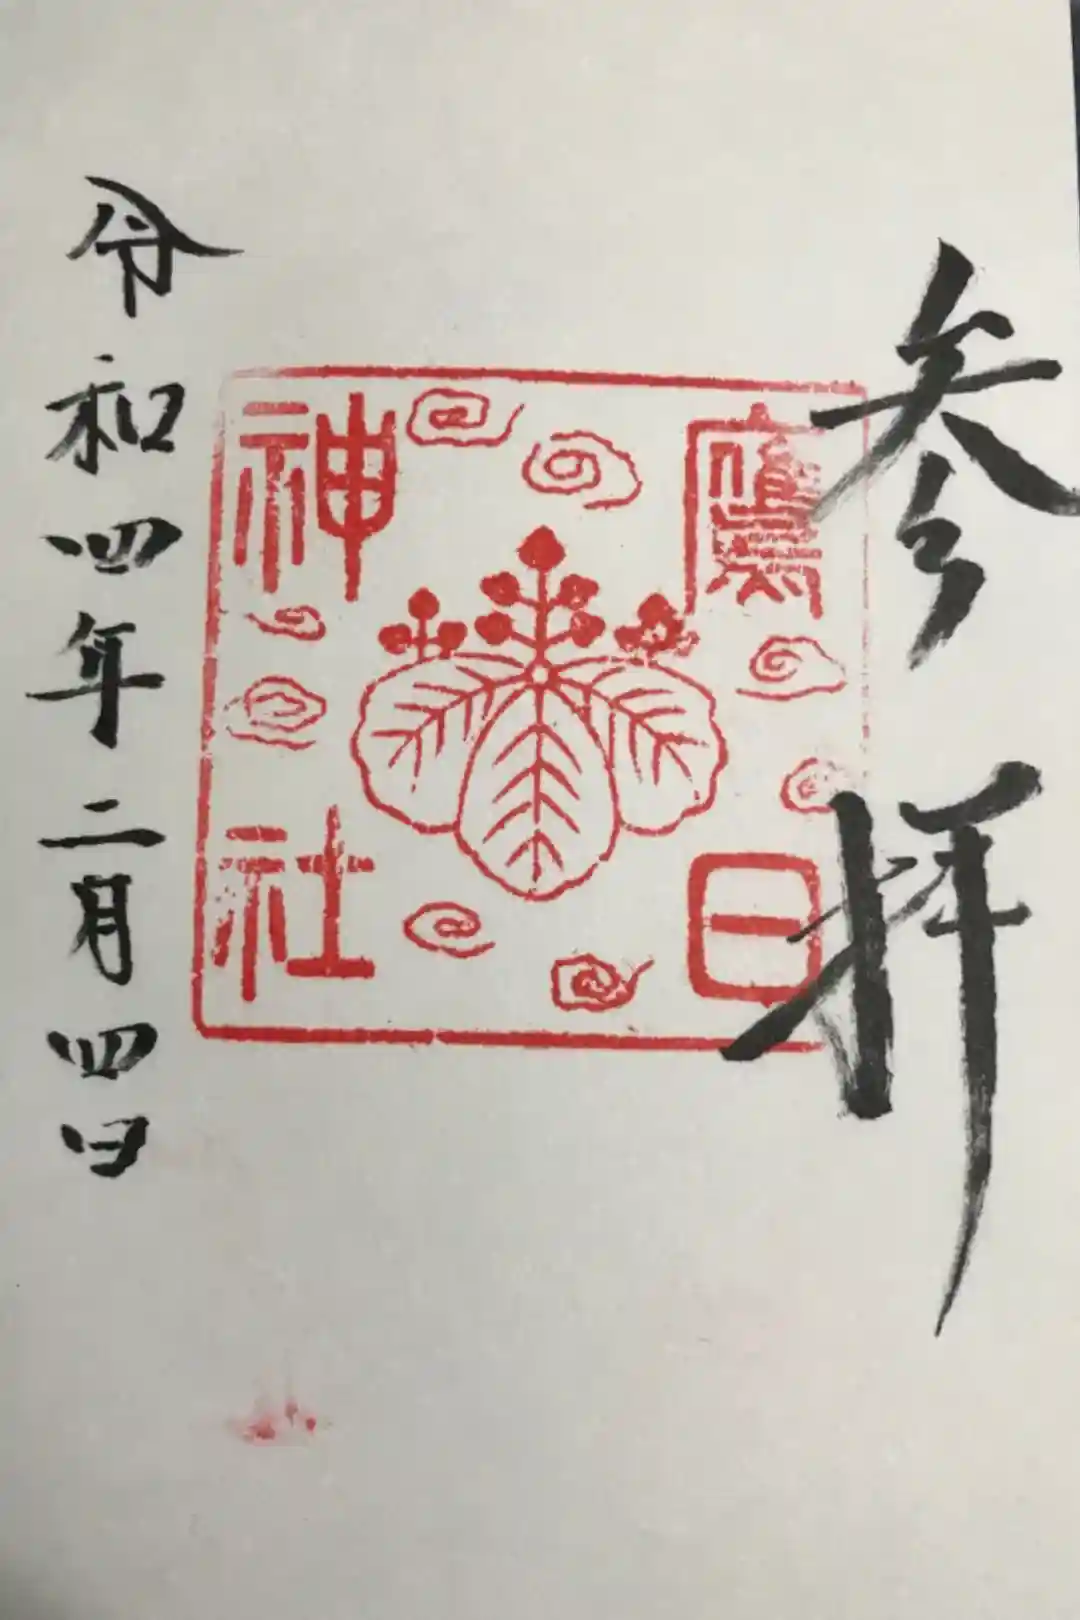 参拝
鷹日
神社
令和四年二月四日